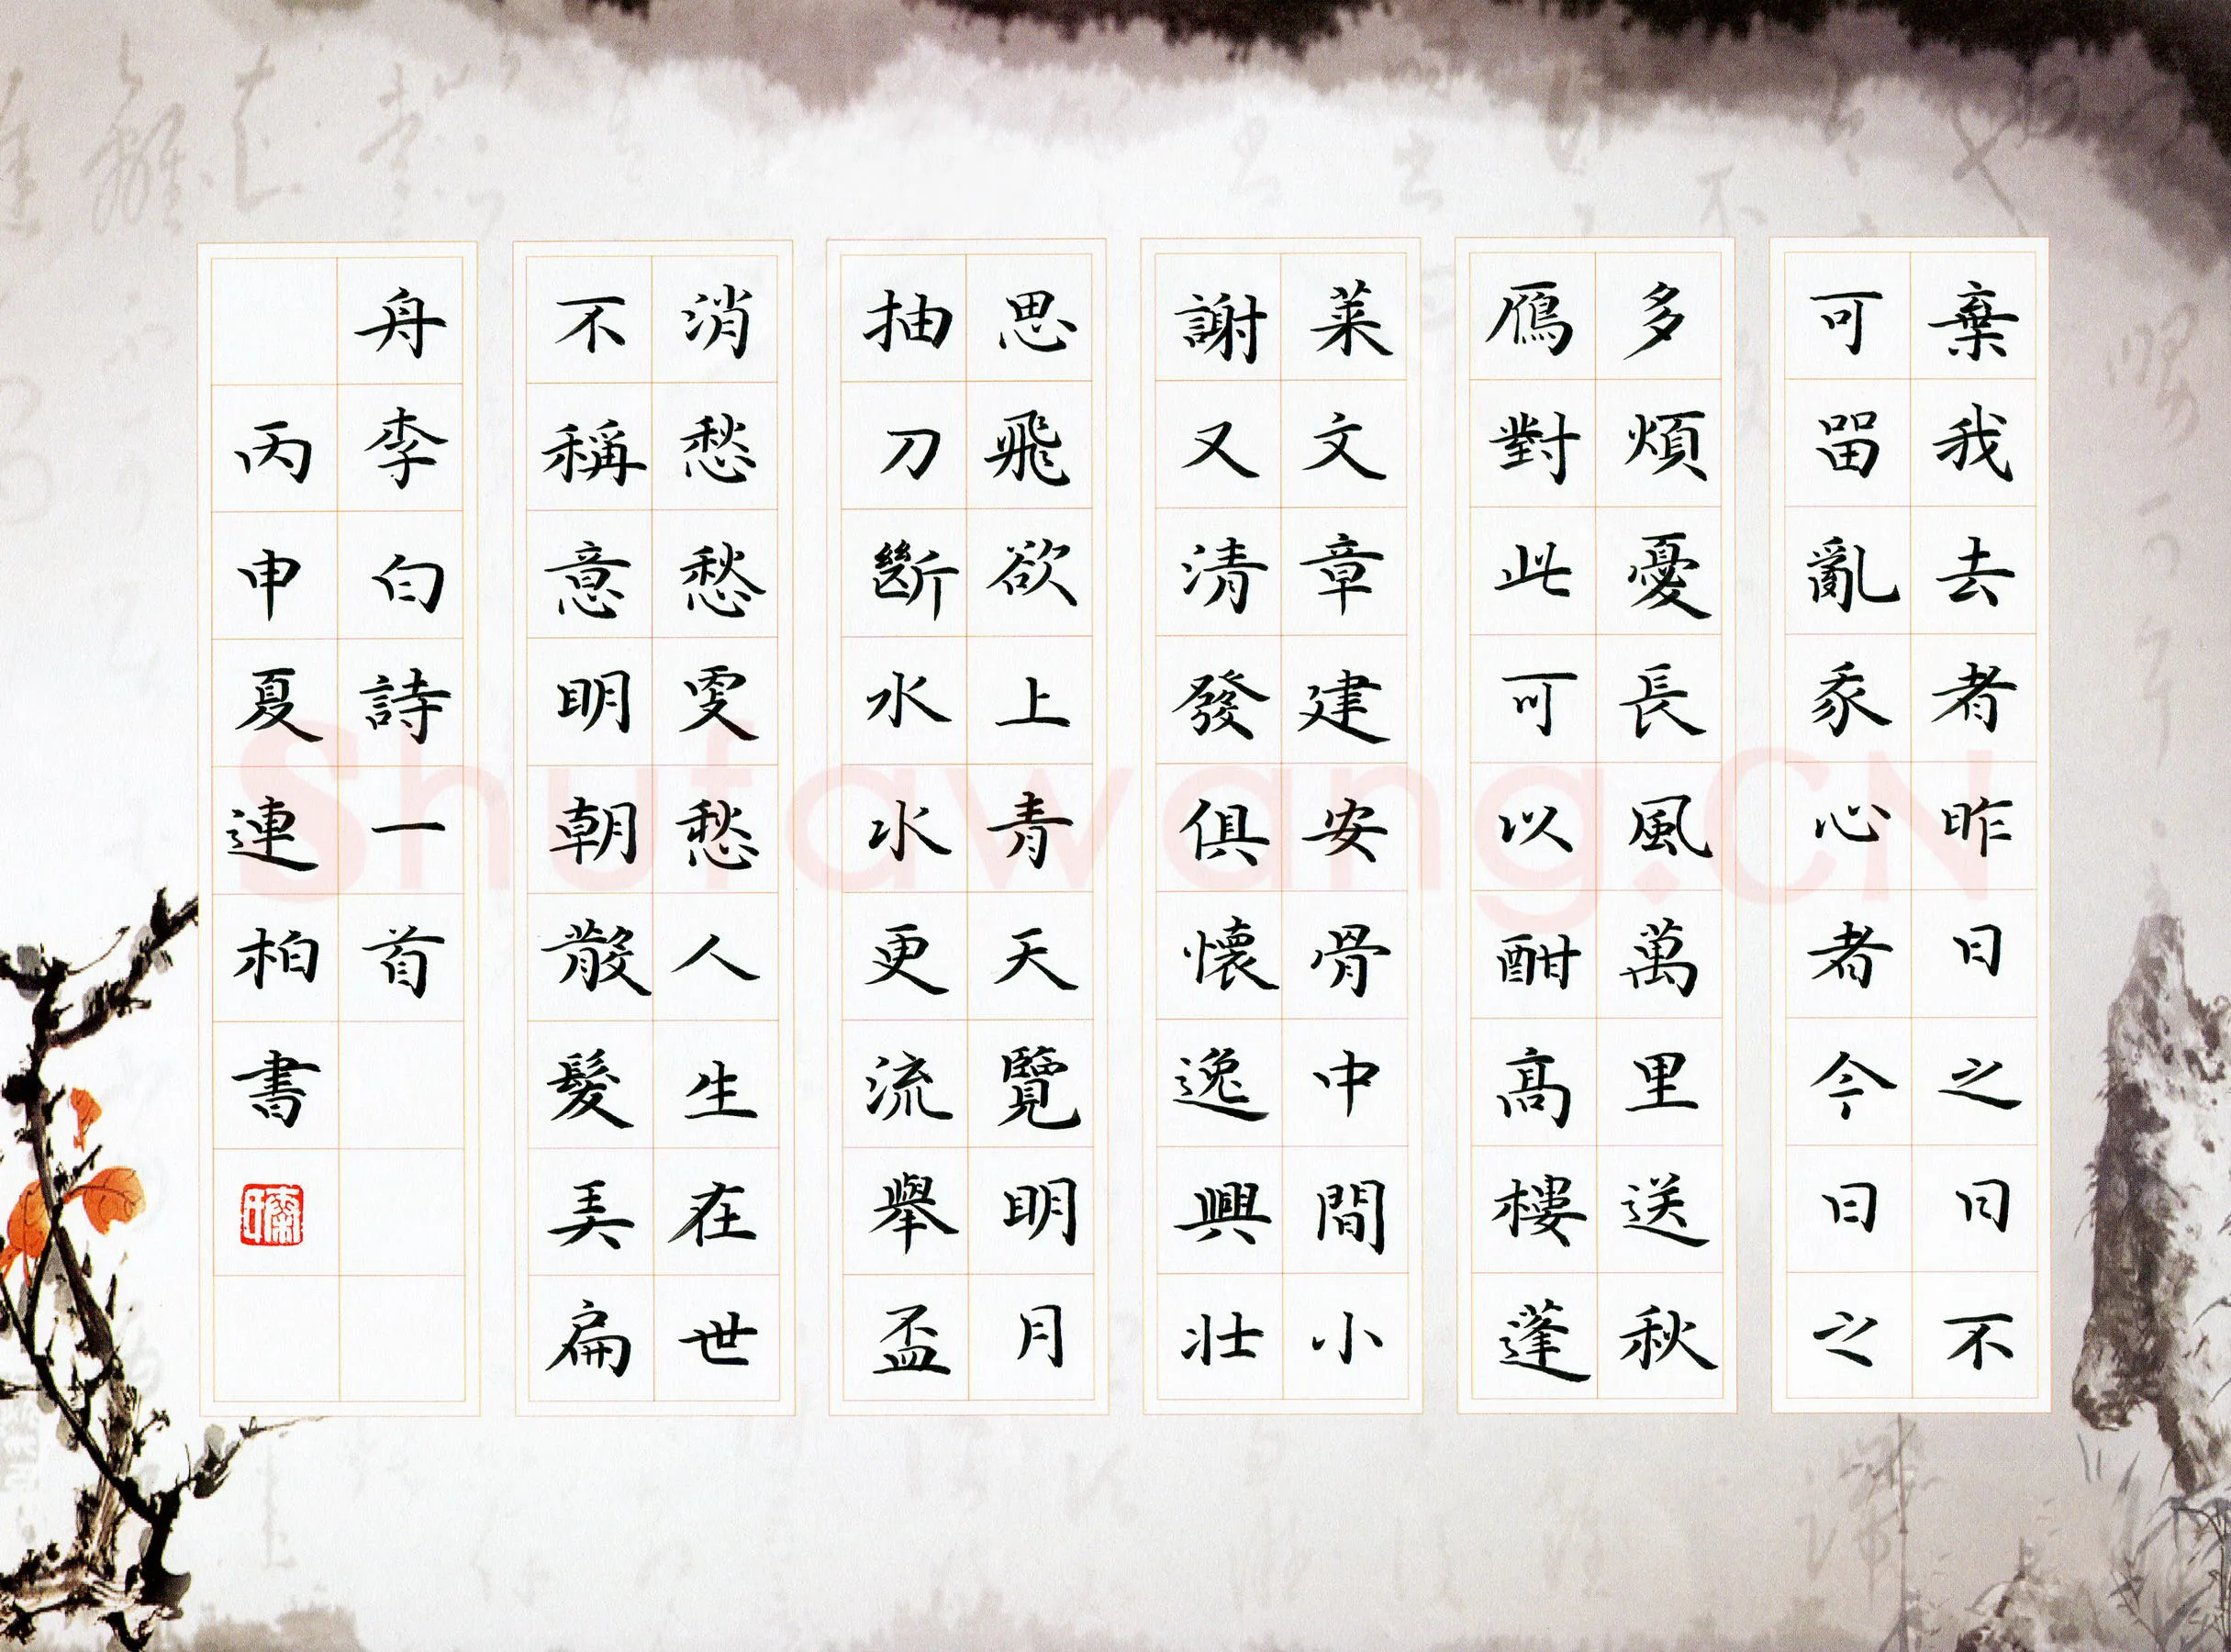 棄我去者昨日之日不
可留亂我心者今日之
多煩憂長風萬里送秋
鴈對此可以酣髙樓蓬
萊文章建安骨中間小
謝又清發俱懷逸興壯
思飛欲上青天覽明月
抽刀斷水水更流舉盃
消愁愁更愁人生在世
不稱意明朝散髮弄扁
舟李白詩一首
丙申夏連柏書
Shufawang.CN